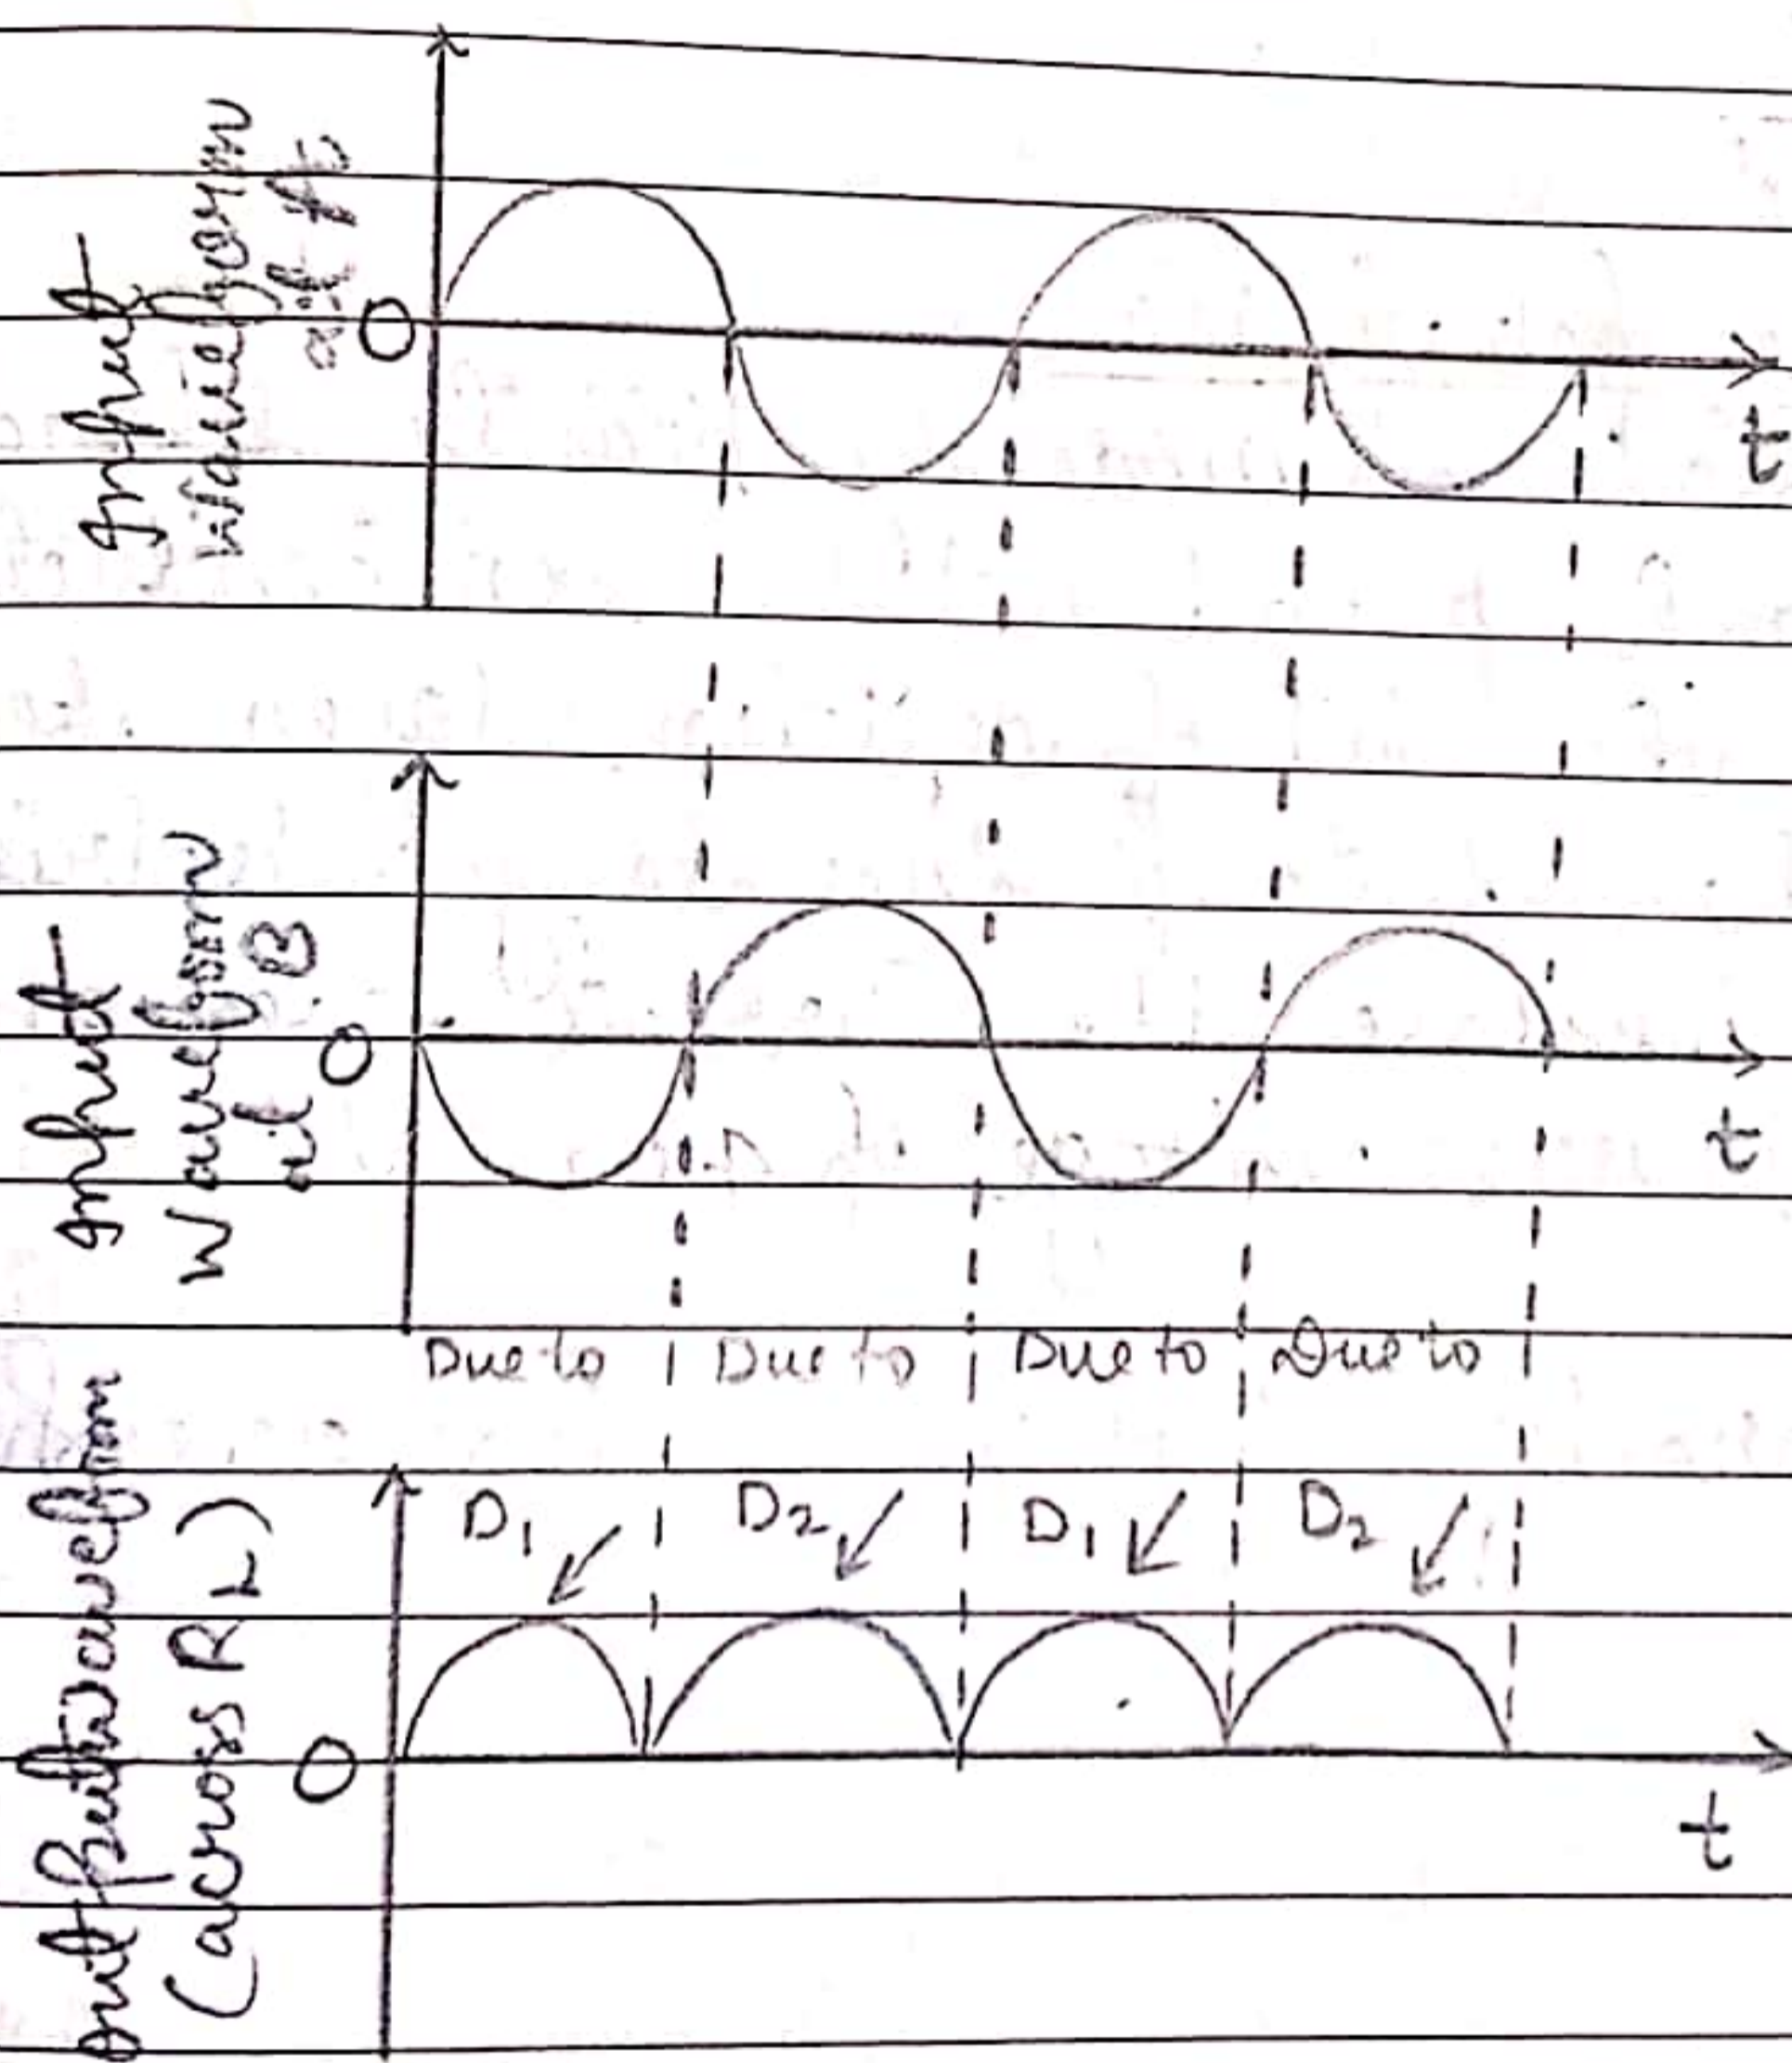 Input
Waveform
at A
0
t
Input
Waveform
at B
0
t
Due to Due to Due to Due to
D1 D2 D1 D2
Output waveform
(across RL)
0
t